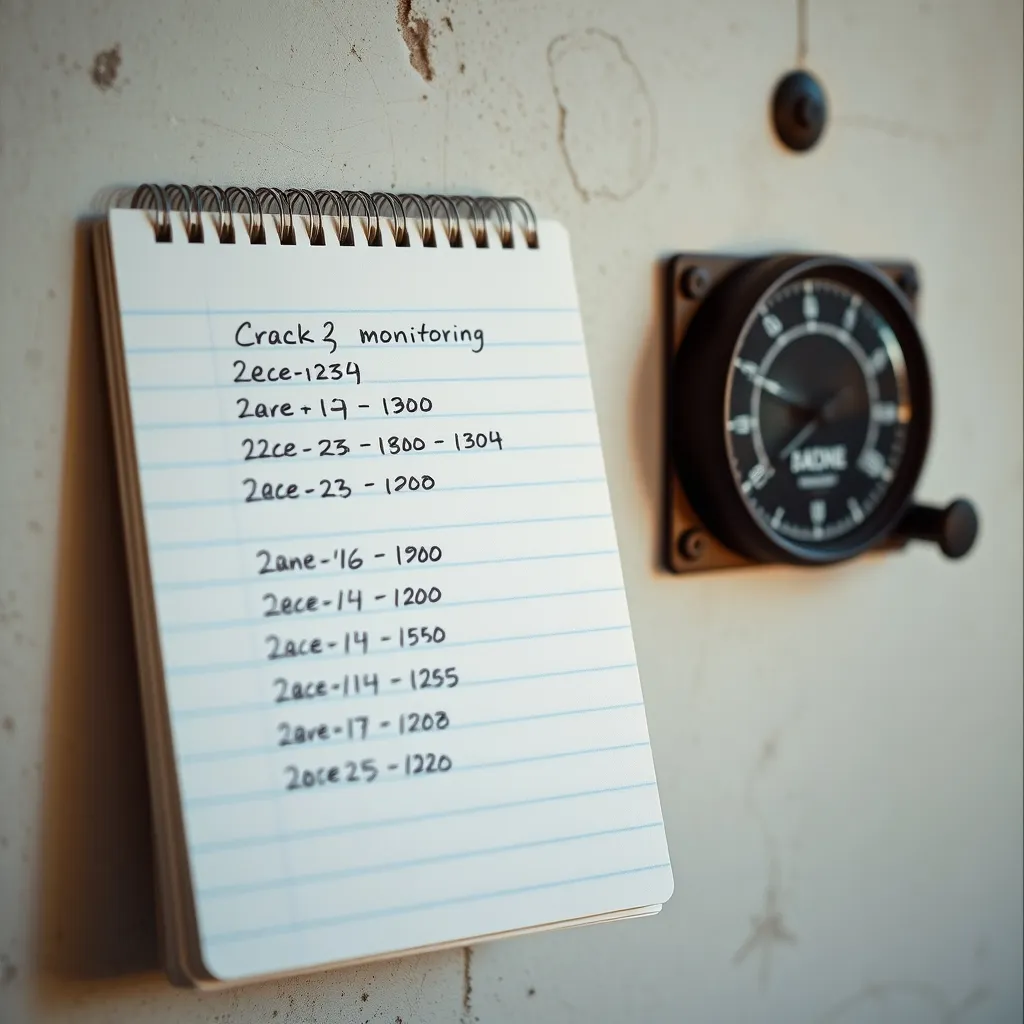 Crack 3 monitoring
2ece-1234
2are + 17 - 1300
22ce - 23 - 1300 - 1304
2ace - 23 - 1200
2ane-'16 - 1900
2ece-14 - 1200
2ace-14 - 1550
2ace-114 - 1255
2are-17 - 1208
2oce25 - 1220